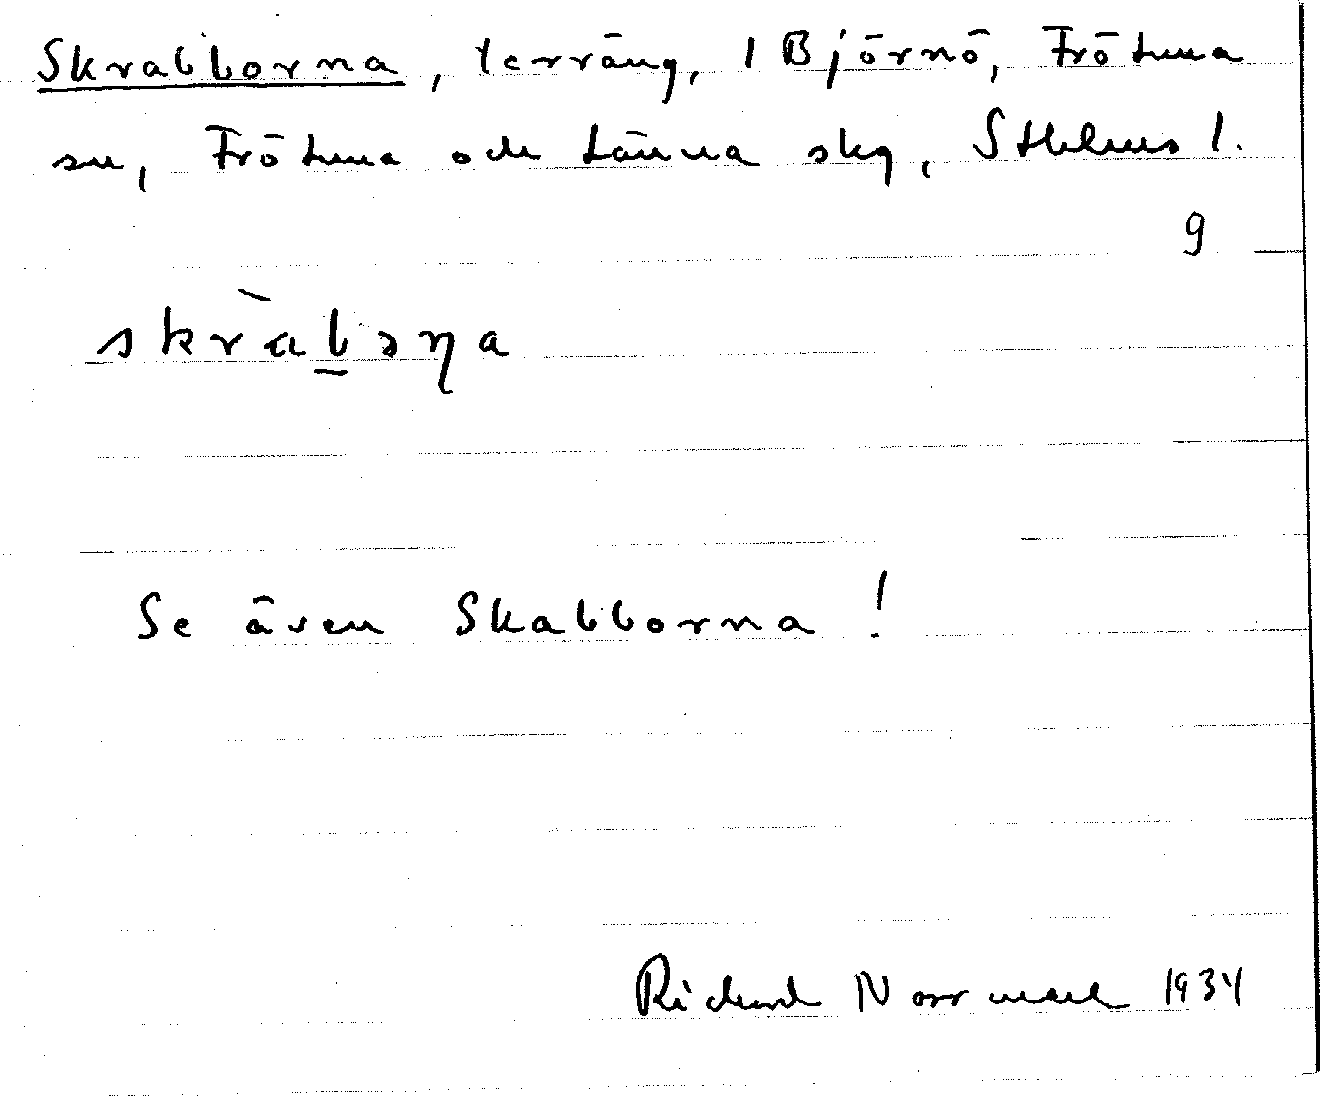 Skrabborna, terräng, 1 Björnö, Frötuna
sn, Frötuna och Länna skg, Sthlms l.
9
skràb̲əɳa
Se även Skabborna!
Richard Norrmark 1934